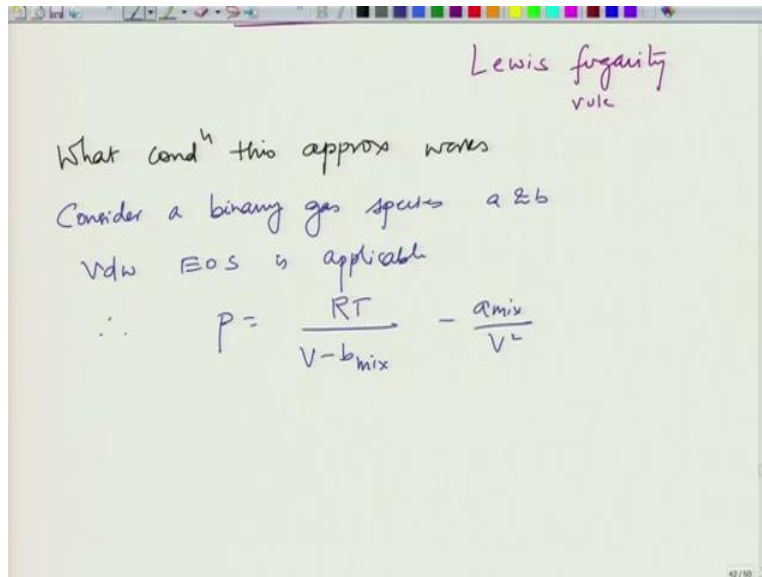 Lewis fugacity
rule
What condⁿ this approx works
Consider a binary gas species a & b
Vdw EOS is applicable
∴ P = RT / (V - b_mix) - a_mix / V²
42/50